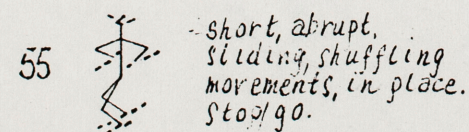 55
short, abrupt,
sliding, shuffling
movements, in place.
stop/go.